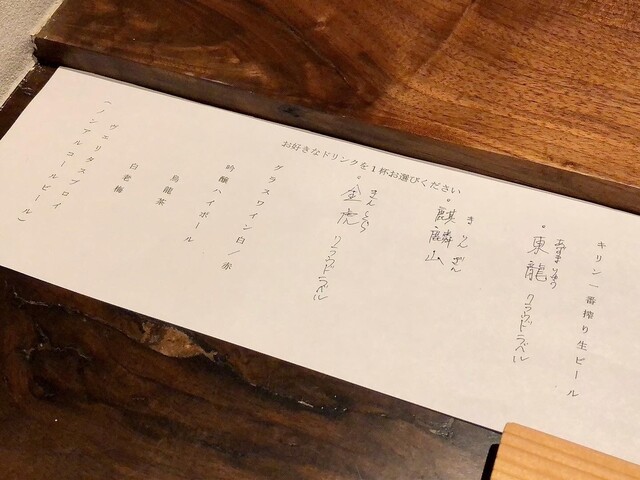 お好きなドリンクを1杯お選びください
キリン一番搾り生ビール
あずまりゅう
・東龍 クラウドラベル
きりんざん
・麒麟山
きんとら
・金虎 クラウドラベル
グラスワイン白/赤
吟醸ハイボール
烏龍茶
白老梅
ヴェリタスブロイ
(ノンアルコールビール)